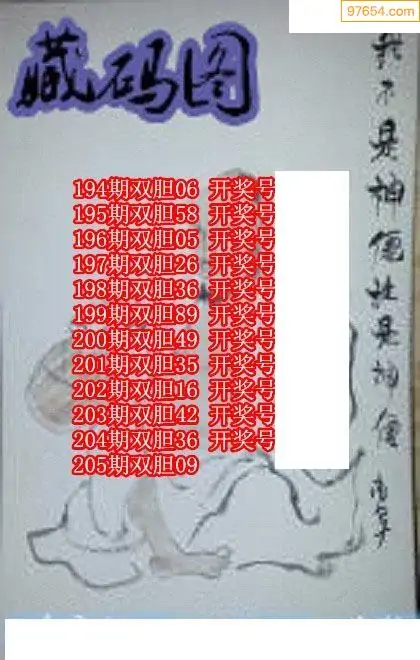 97654.com
藏码图
我不是神便社是神便
194期双胆06 开奖号
195期双胆58 开奖号
196期双胆05 开奖号
197期双胆26 开奖号
198期双胆36 开奖号
199期双胆89 开奖号
200期双胆49 开奖号
201期双胆35 开奖号
202期双胆16 开奖号
203期双胆42 开奖号
204期双胆36 开奖号
205期双胆09